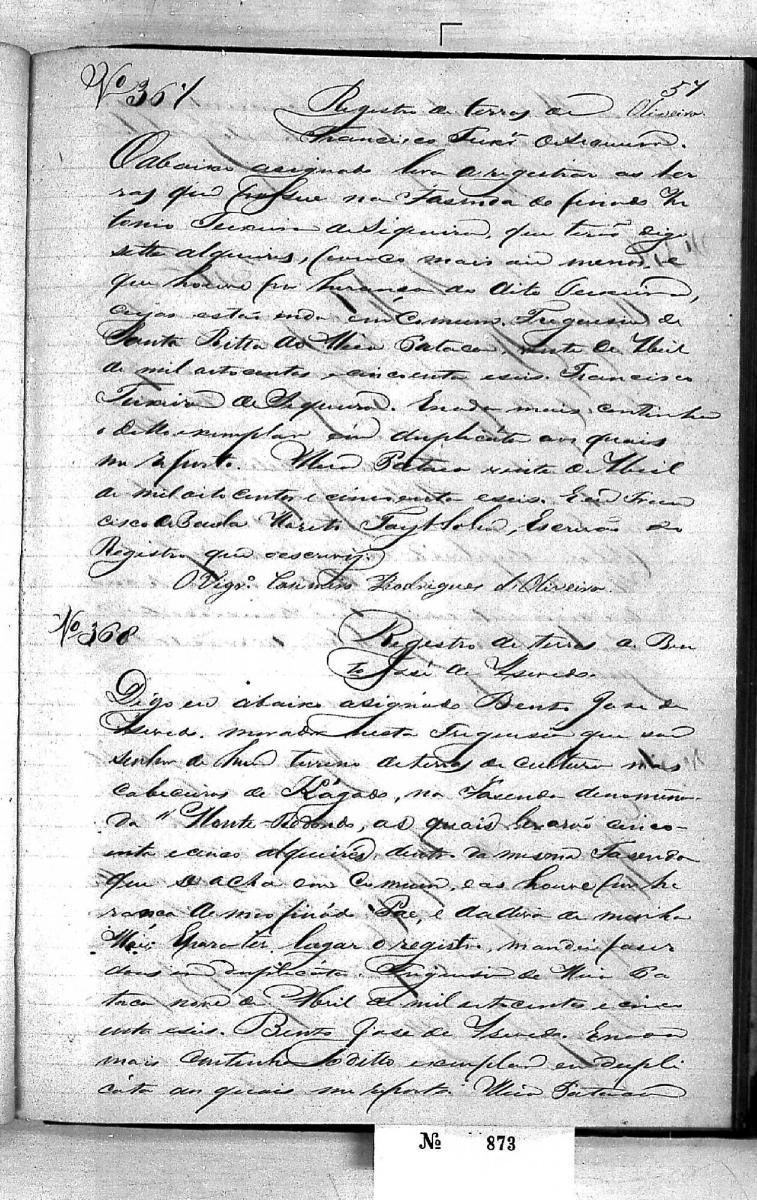 57
Nº 367
Registro de terras de Oliveira
Francisco Teixrª de Siqueira.
O abaixo asignado leva a registrar as ter
ras que possue na Fasenda do finado An
tonio Teixeira de Siqueira, que terão digo
sette alqueires, pouco mais ou menos, e
que houve por herança do dito Teixeira,
cujas estão inda em Comum. Freguesia de
Santa Ritta do Meia Pataca, vinte de Abril
de mil oitocentos e cincoenta e seis. Francisco
Teixeira de Siqueira. E nada mais continha
o ditto exemplar em duplicata aos quais
me reporto. Meia Pataca vinte de Abril
de mil oito centos e cincoenta e seis. E eu Fran
cisco de Paula, Escrivão do
Registro que o escrevy.
O Vigrº. Casimiro Rodrigues d'Oliveira.
Nº 368
Registro de terras de Ben
to José de Asevedo.
Digo eu abaixo asignado Bento Jose de
Asevedo, morador nesta Freguesia que sou
senhor de hum terreno de terras de cultura nas
cabeceiras do Kágado, na Fasenda denomina
da "Monte-Redondo, as quais levarão cinco-
enta e cinco alqueires, dentro da mesma Fasenda
que se acha em Comum, e as houve por he
rança de meo finádo Pae, e dadiva de minha
Mãi; E para ter lugar o registro, mandei faser
dous em duplicáta. Freguesia de Meia Pa
taca nove de Abril de mil oitocentos e cinco
enta e seis. Bento Jose de Asevedo. E nada
mais continha o ditto exemplar em dupli
cáta aos quais me reporto. Meia Pataca
Nº 873